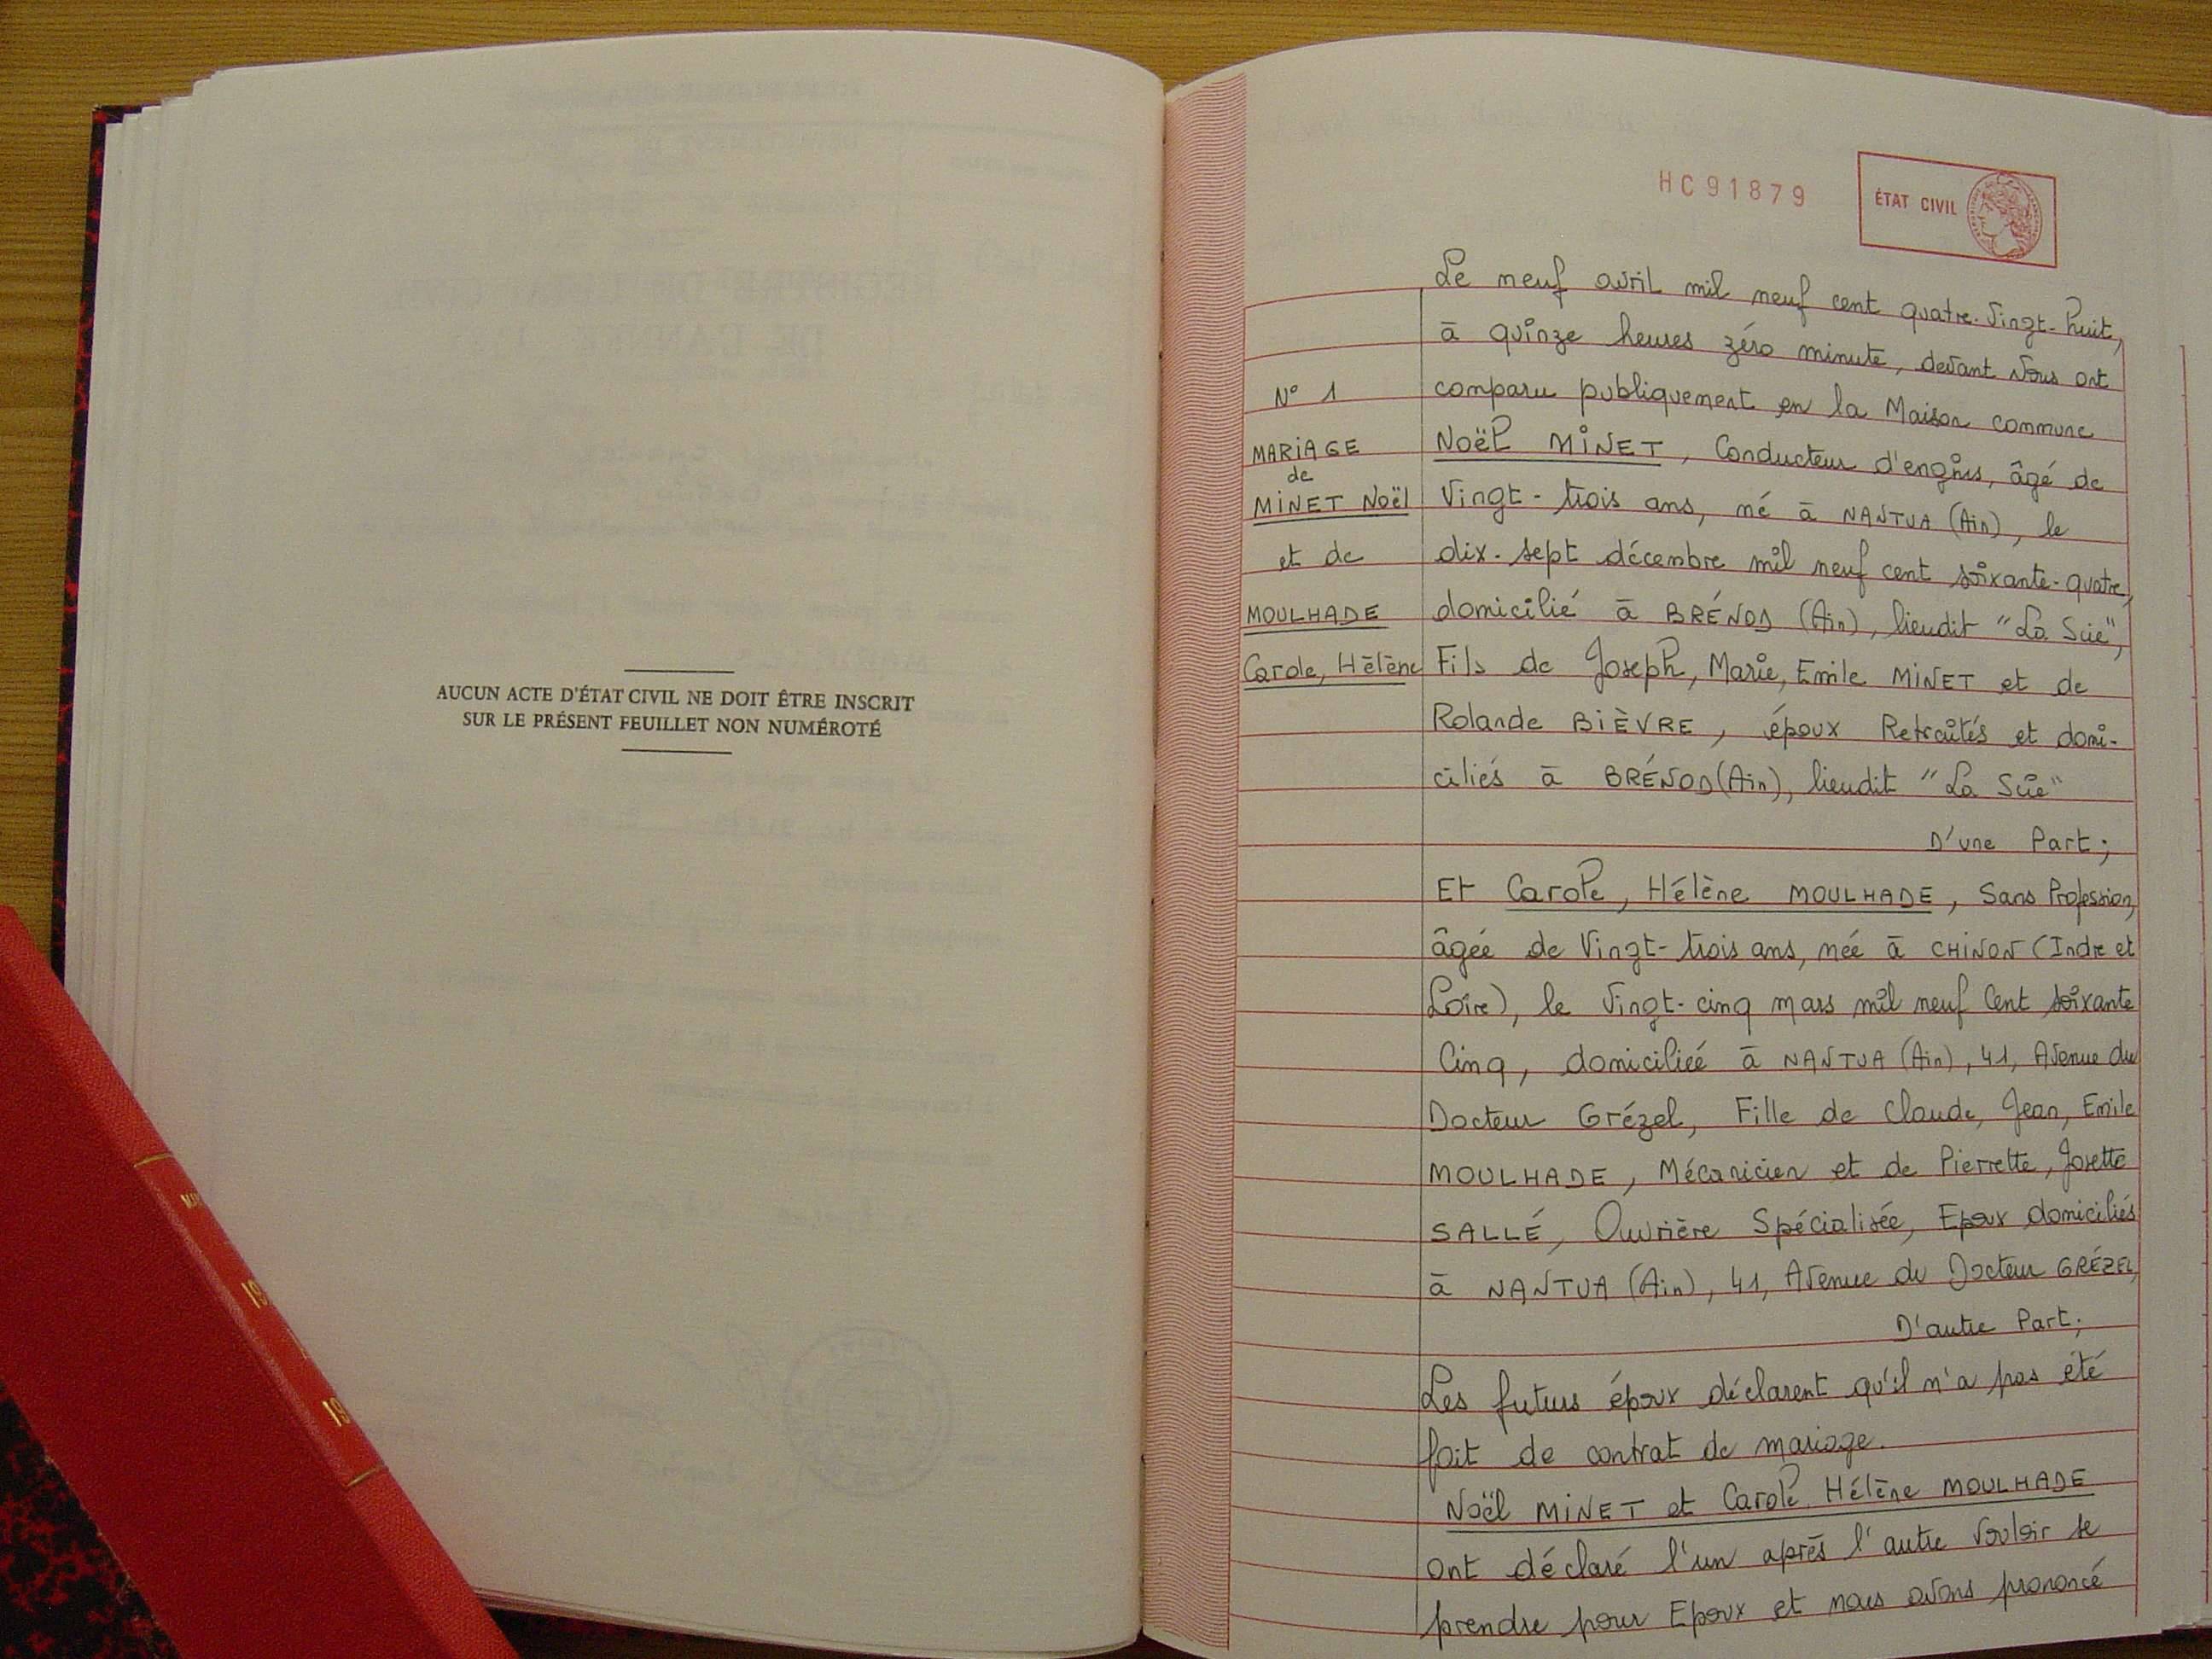 AUCUN ACTE D'ÉTAT CIVIL NE DOIT ÊTRE INSCRIT
SUR LE PRÉSENT FEUILLET NON NUMÉROTÉ
HC91879
ÉTAT CIVIL
N° 1
MARIAGE
de
MINET Noël
et de
MOULHADE
Carole, Hélène
Le neuf avril mil neuf cent quatre-vingt-huit,
à quinze heures zéro minute, devant Nous ont
comparu publiquement en la Maison commune
Noël MINET, Conducteur d'engins, âgé de
Vingt-trois ans, né à NANTUA (Ain), le
dix-sept décembre mil neuf cent soixante-quatre,
domicilié à BRÉNOD (Ain), lieudit "La Scie",
Fils de Joseph, Marie, Emile MINET et de
Rolande BIÈVRE, époux Retraités et domi-
ciliés à BRÉNOD (Ain), lieudit "La Scie"
D'une Part;
Et Carole, Hélène MOULHADE, Sans Profession,
âgée de Vingt-trois ans, née à CHINON (Indre et
Loire), le Vingt-cinq mars mil neuf Cent soixante
Cinq, domiciliée à NANTUA (Ain), 41, Avenue du
Docteur Grézel, Fille de Claude, Jean, Emile
MOULHADE, Mécanicien et de Pierrette, Josette
SALLÉ, Ouvrière Spécialisée, Epoux domiciliés
à NANTUA (Ain), 41, Avenue du Docteur GRÉZEL,
D'autre Part;
Les futurs époux déclarent qu'il n'a pas été
fait de contrat de mariage.
Noël MINET et Carole, Hélène MOULHADE
Ont déclaré l'un après l'autre Vouloir se
prendre pour Epoux et nous avons prononcé
19
19